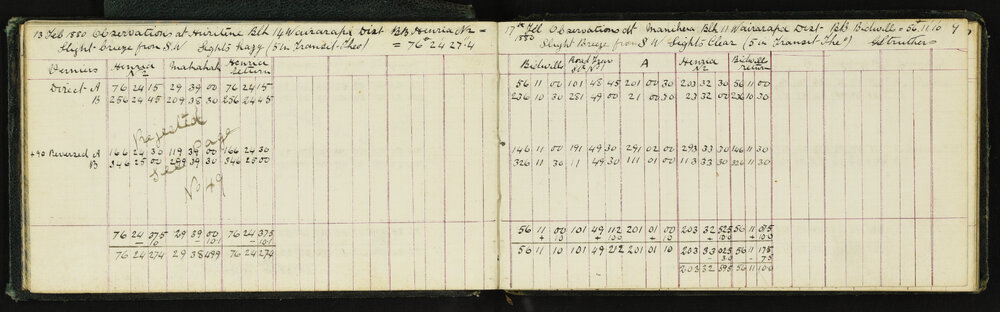 13 Feb 1880 Observations at Huritini Blk 14 Wairarapa Dist B/B Henria No 2 =
Slight breeze from SW Sights Hazy (5 in Transit Theo) = 76° 24' 27.4
Verniers Henria No 2 Mahahah Henria return
Direct A 76 24 15 29 39 00 76 24 15
B 256 24 45 209 38 30 256 24 45
Rejected
See page
No 49
+90 Reversed A 166 24 30 119 39 00 166 24 30
B 346 25 00 299 39 30 346 25 00
76 24 375 29 39 00 76 24 375
– 10 – 10.1 – 10.1
76 24 274 29 38 499 76 24 274
17th Feb 1880 Observations at Blk 11 Wairarapa Dist B/B Bidwills = 56.11.10 7
Slight Breeze from SW Sights Clear (5 in Transit Theo) Struthers
Bidwills Road Trav Stn No 1 A Henria No 2 Bidwills return
56 11 00 101 48 45 201 00 30 203 32 30 56 11 00
236 10 30 281 49 00 21 00 30 23 32 00 236 10 30
146 11 00 191 49 30 291 02 00 293 33 30 146 11 30
326 11 30 11 49 30 111 01 00 113 33 30 326 11 30
56 11 00 101 49 112 201 01 00 203 32 525 56 11 075
+ 10 + 10.0 + 10 + 10.0 + 10.0
56 11 10 101 49 212 201 01 10 203 33 025 56 11 175
3.0 – 7.5
203 32 595 56 11 10.0